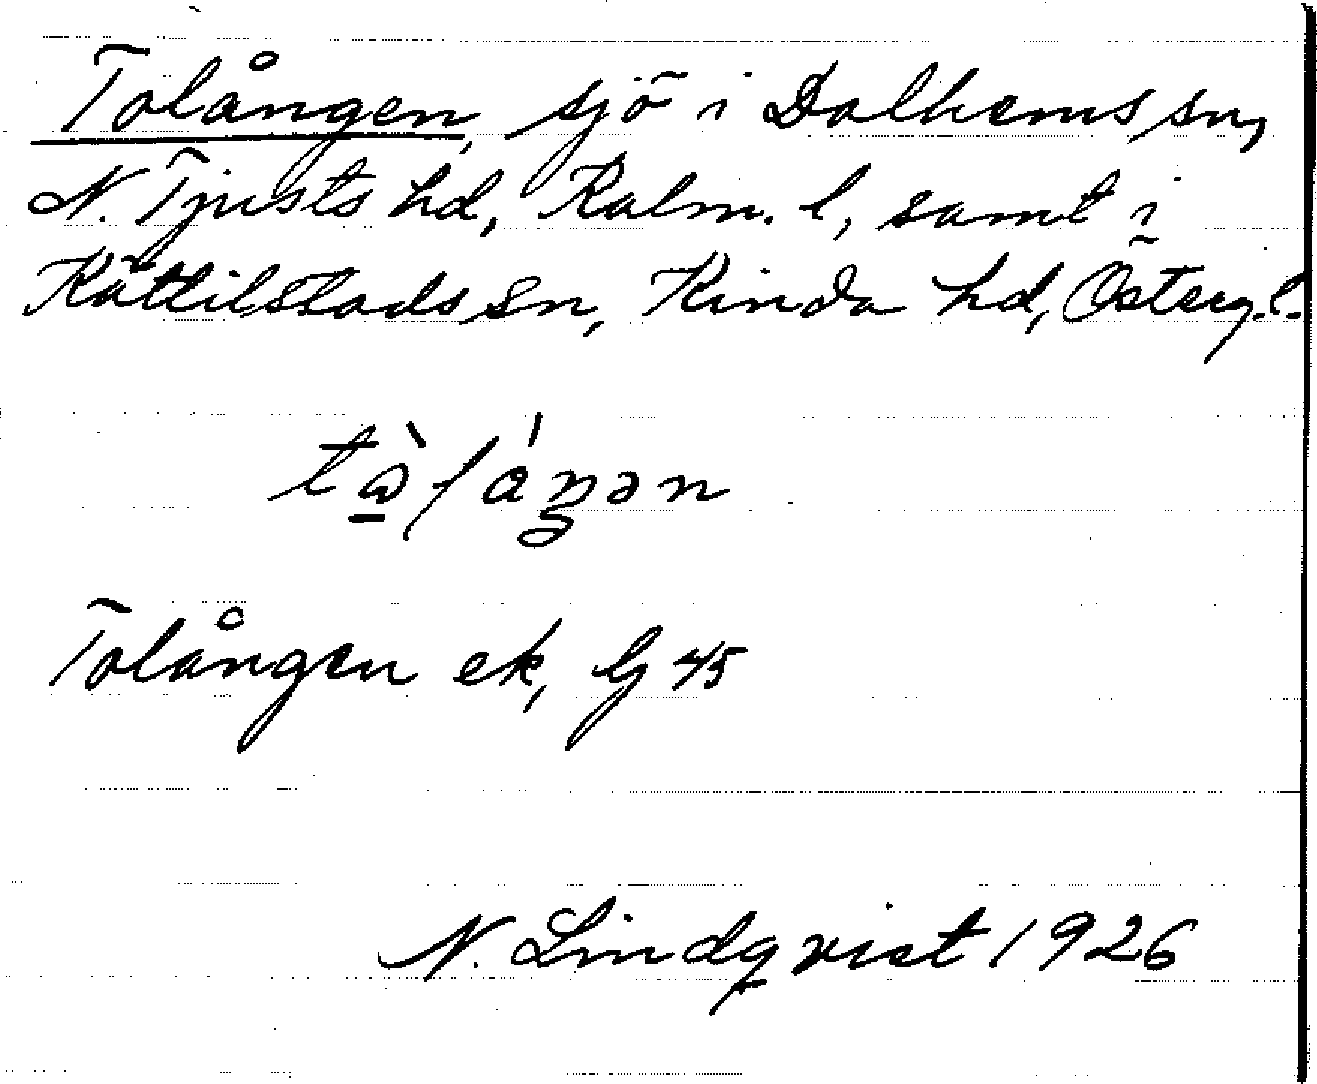 Tolången, sjö i Dalhems sn,
N. Tjusts hd, Kalm. l, samt i
Kättilstads sn, Kinda hd, Österg. l.
Tolången ek, bg 45
N. Lindqvist 1926